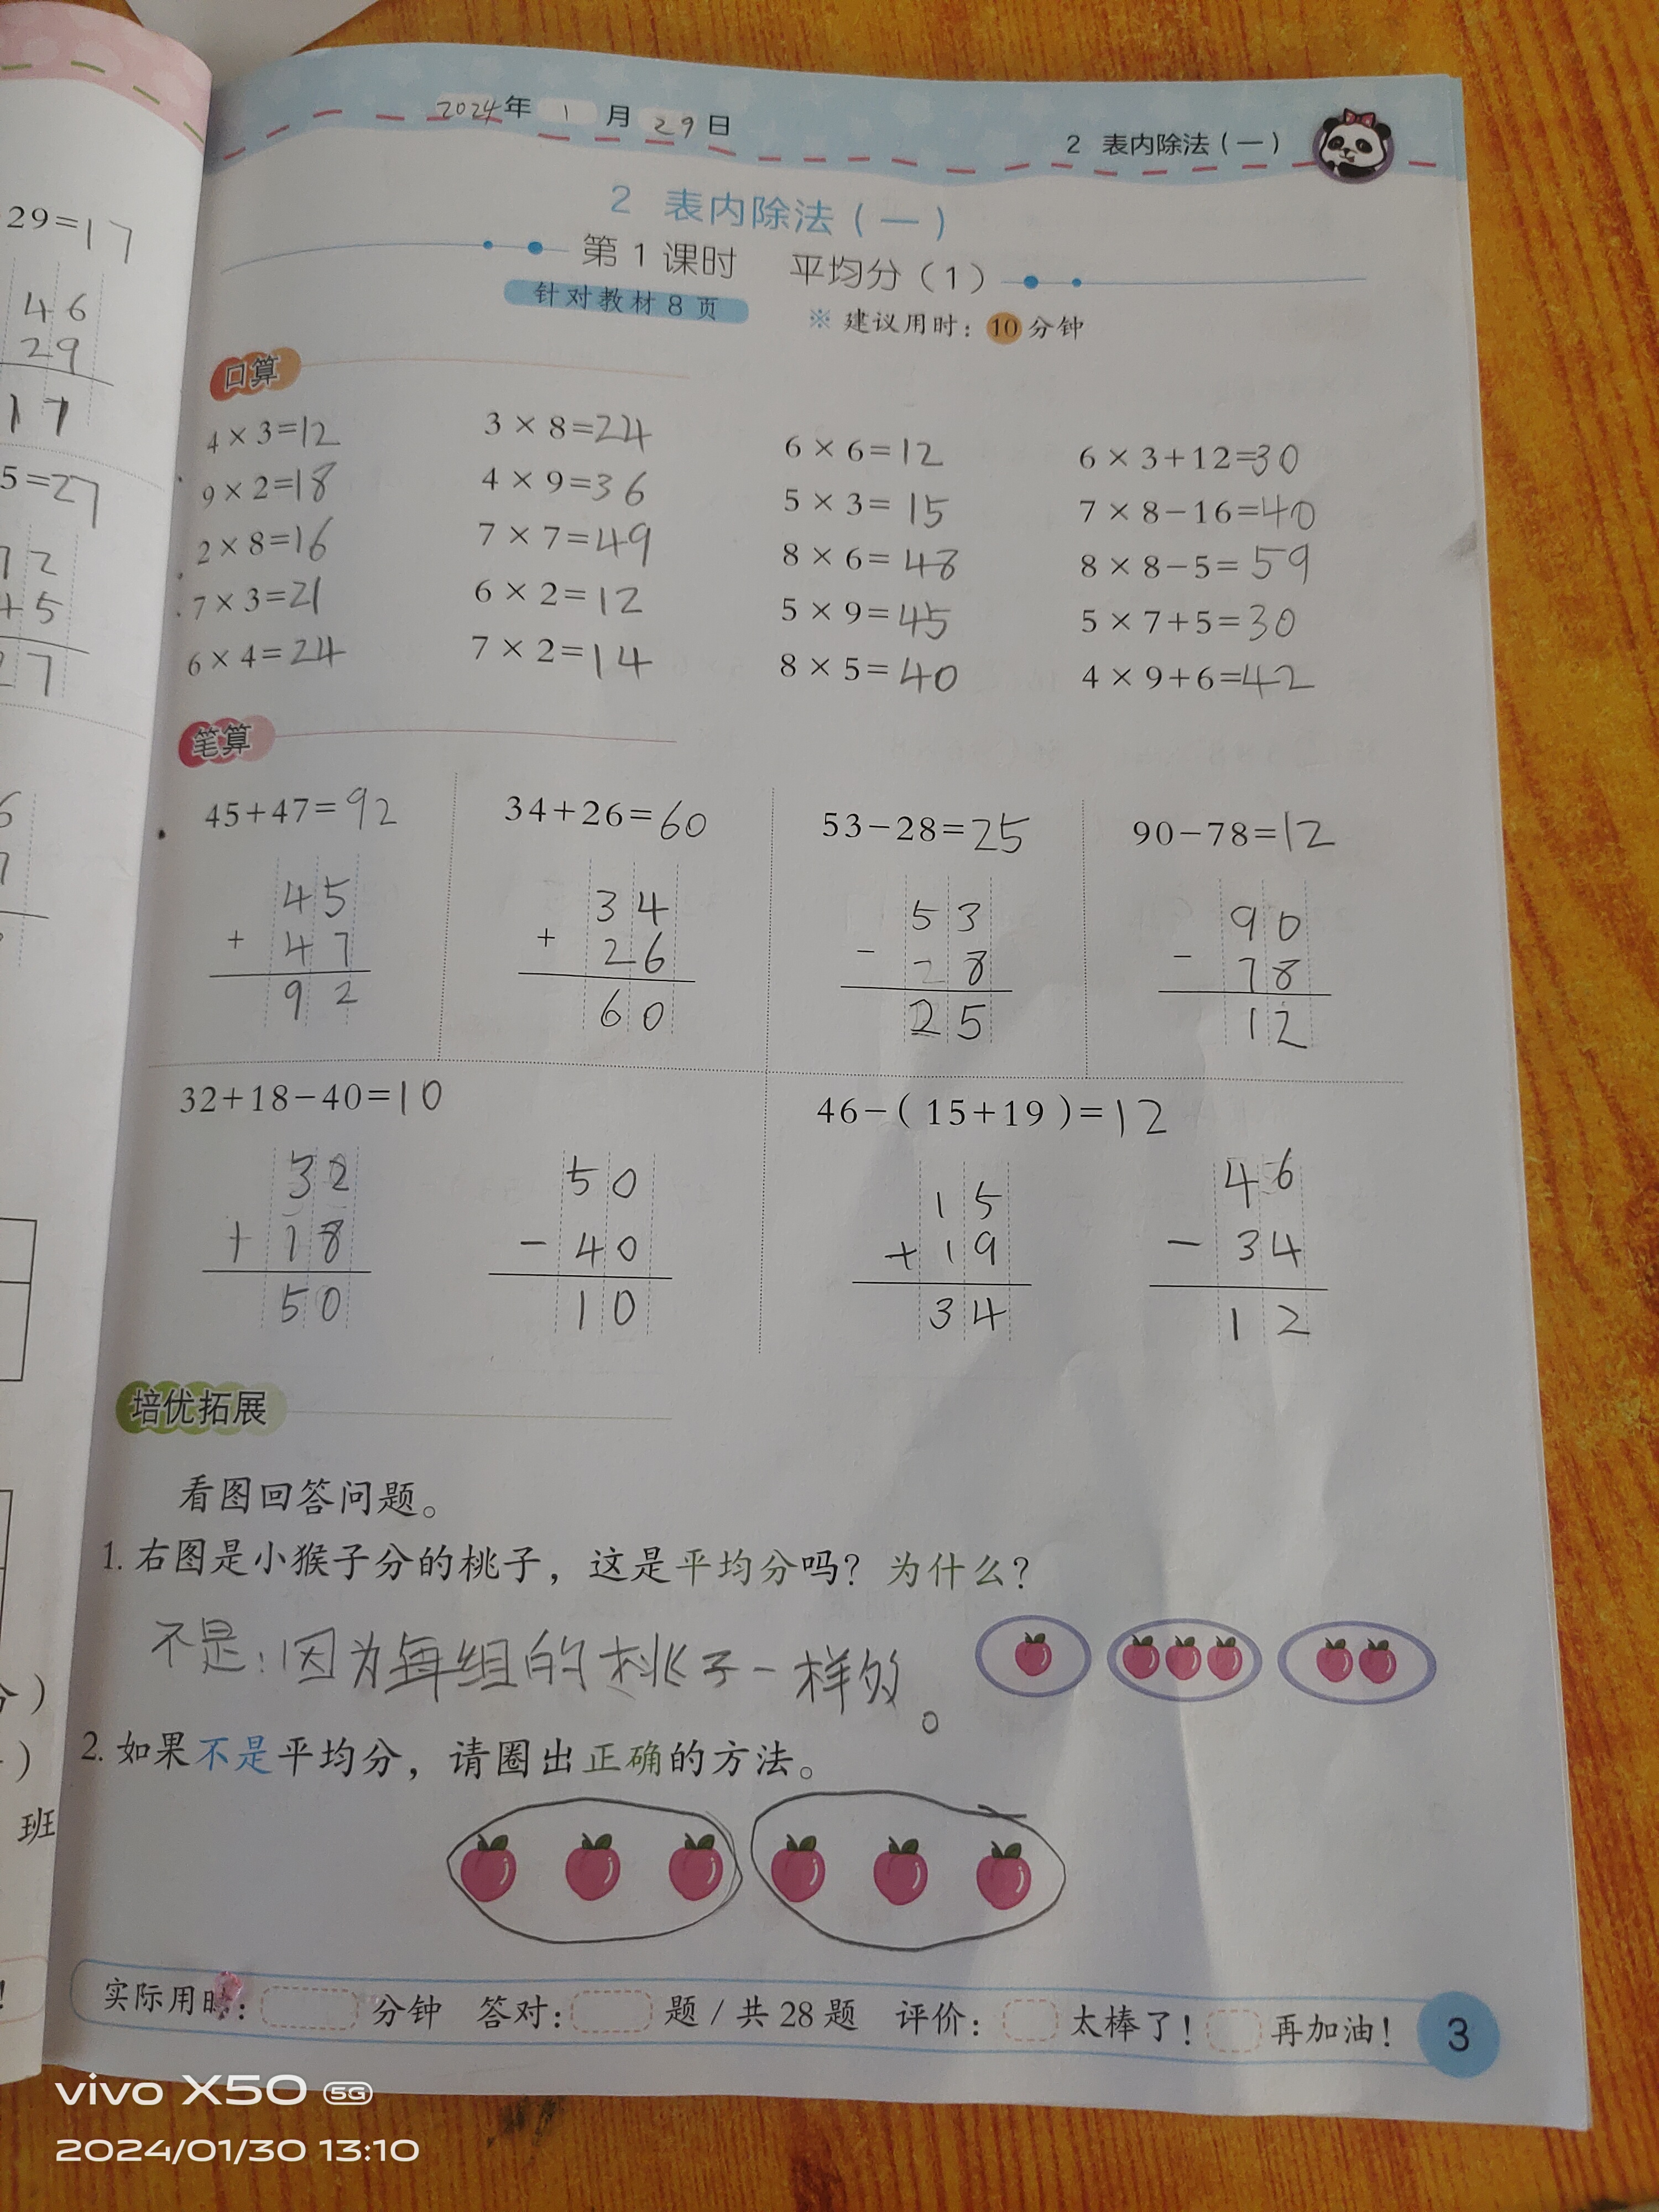 2024年 1 月 29 日
2 表内除法(一)
2 表内除法(一)
第1课时 平均分(1)
针对教材8页
※ 建议用时:10分钟
口算
4×3=12 3×8=24 6×6=12 6×3+12=30
9×2=18 4×9=36 5×3=15 7×8-16=40
2×8=16 7×7=49 8×6=48 8×8-5=59
7×3=21 6×2=12 5×9=45 5×7+5=30
6×4=24 7×2=14 8×5=40 4×9+6=42
笔算
45+47=92 34+26=60 53-28=25 90-78=12
45 34 53 90
+ 47 + 26 - 28 - 78
92 60 25 12
32+18-40=10 46-(15+19)=12
32 50 15 46
+ 18 - 40 + 19 - 34
50 10 34 12
培优拓展
看图回答问题。
1. 右图是小猴子分的桃子,这是平均分吗?为什么?
不是:因为每组的桃子一样的。
2. 如果不是平均分,请圈出正确的方法。
实际用时: 分钟 答对: 题/共28题 评价: 太棒了! 再加油!
3
29=17
46
29
17
5=27
72
45
27
班
vivo X50 5G
2024/01/30 13:10